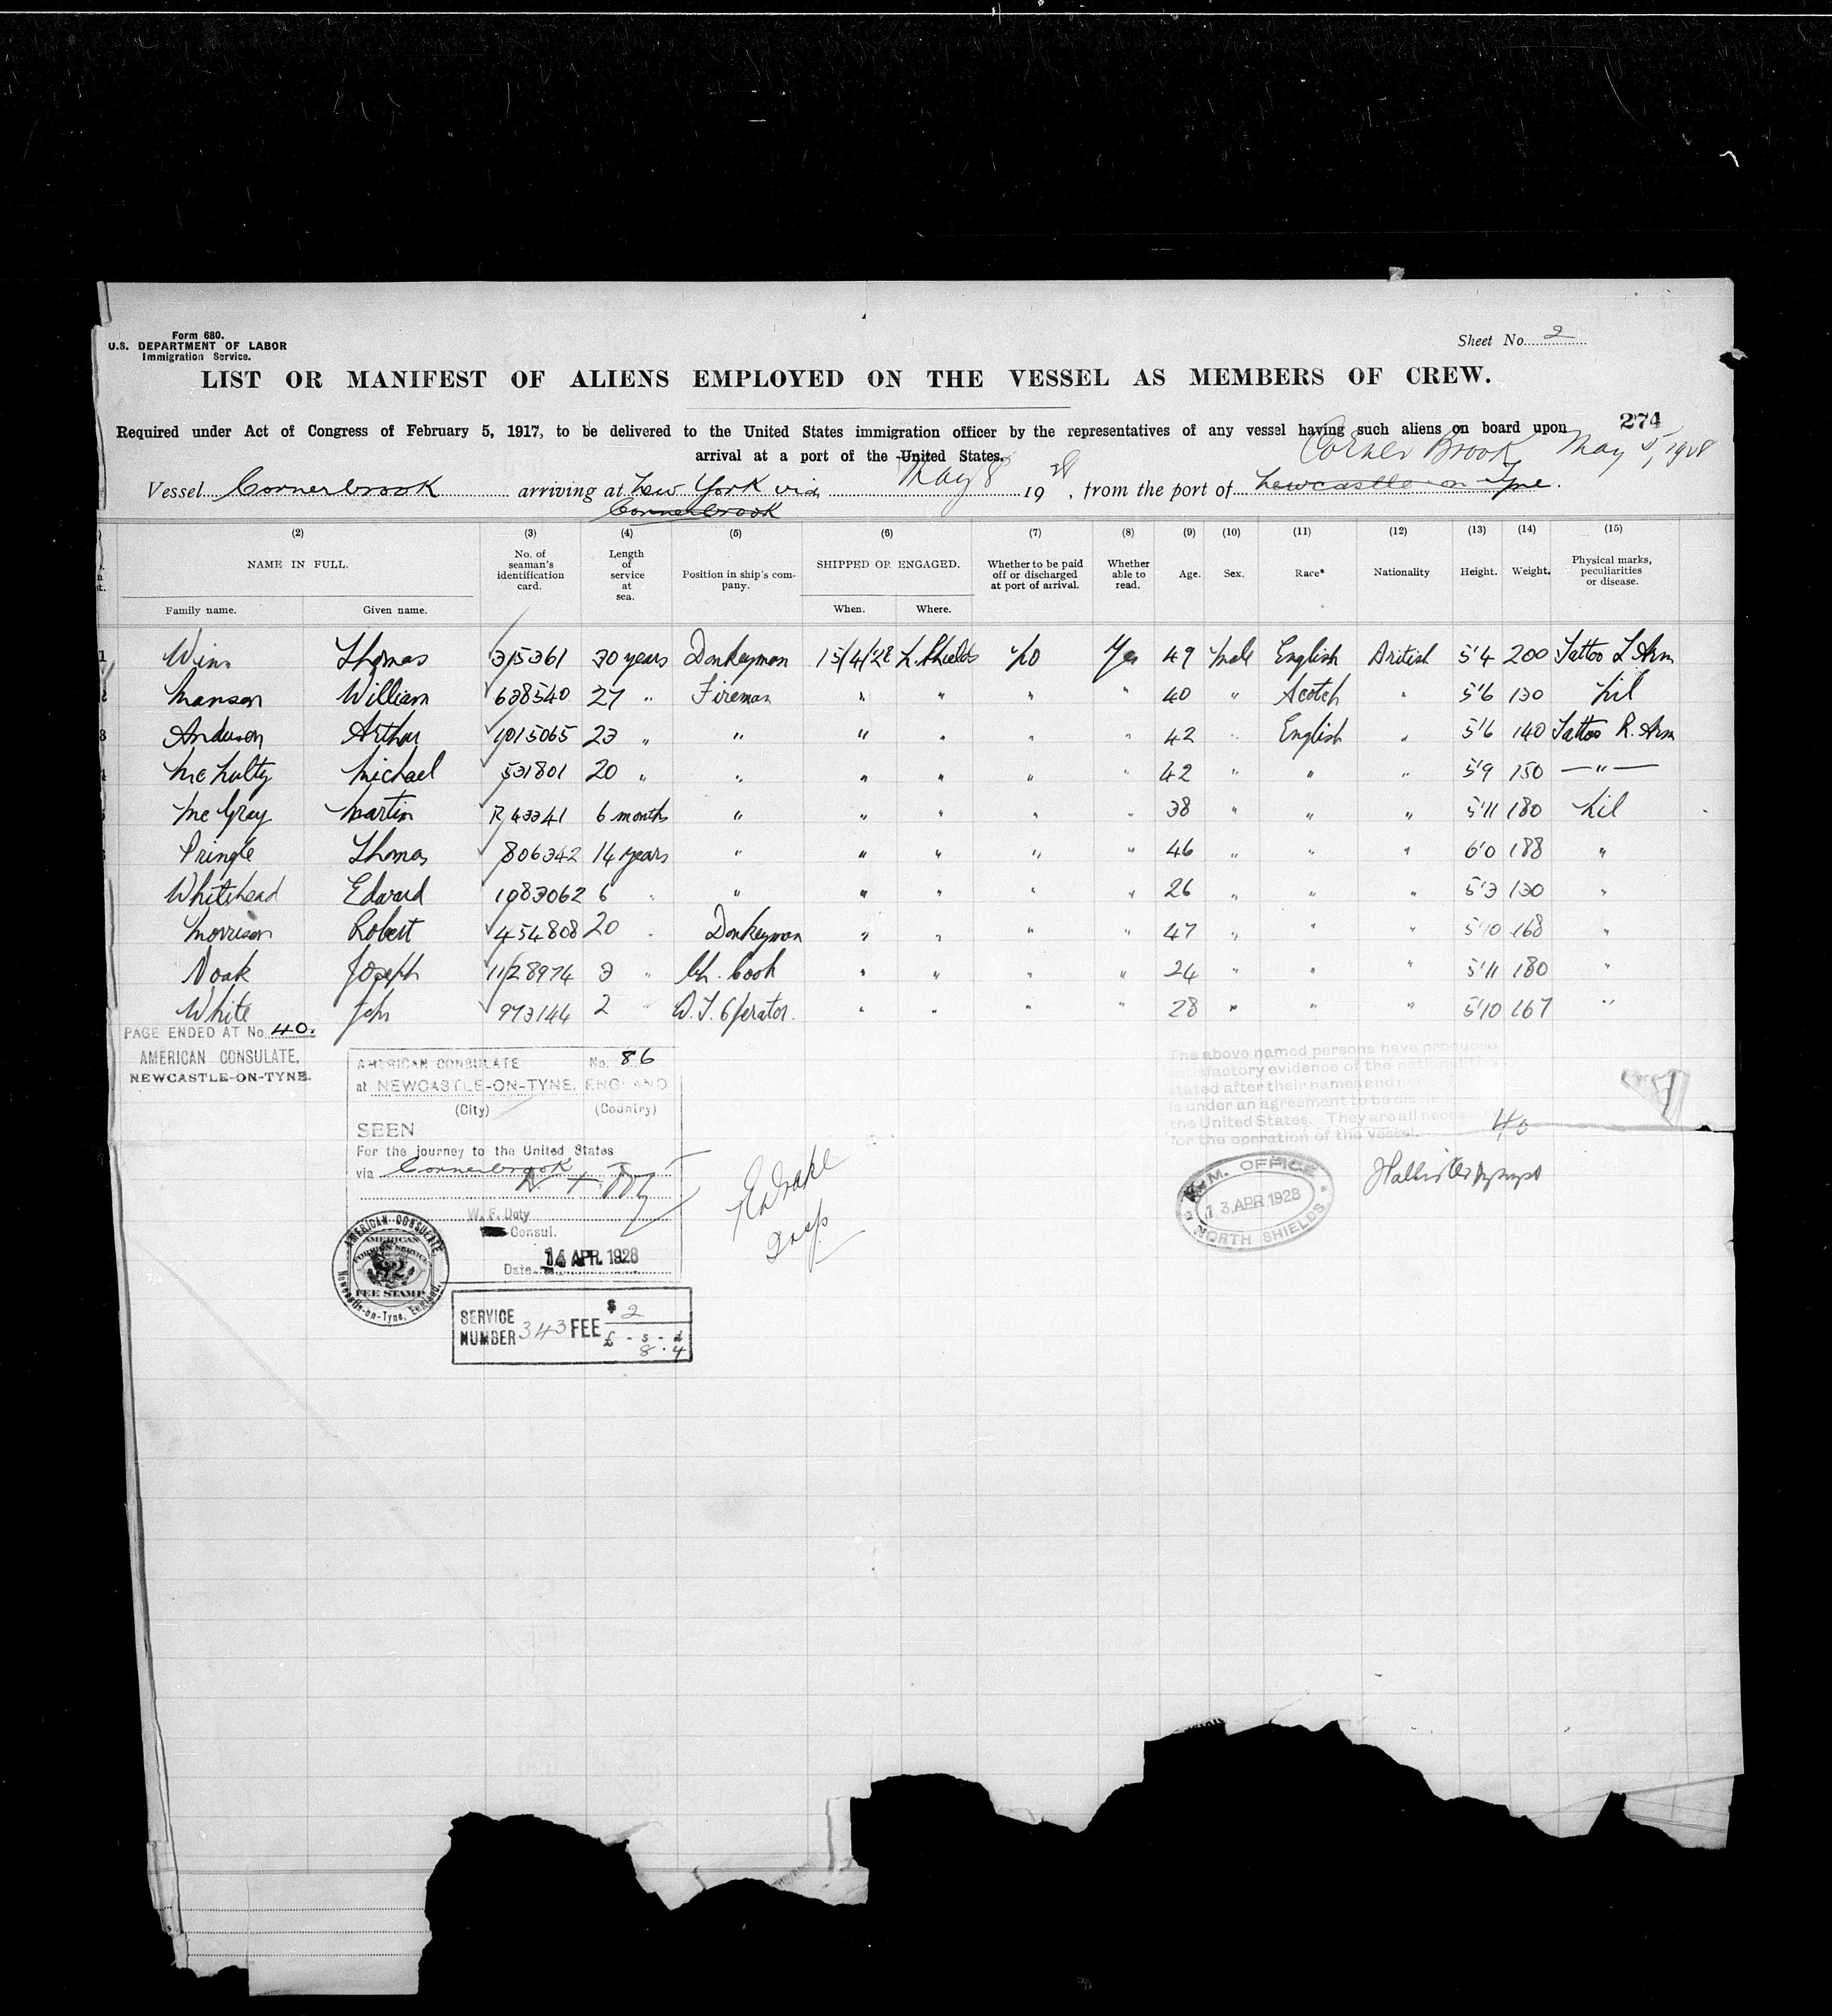 Form 680.
U.S. DEPARTMENT OF LABOR
Immigration Service.
Sheet No. 2
LIST OR MANIFEST OF ALIENS EMPLOYED ON THE VESSEL AS MEMBERS OF CREW.
274
Required under Act of Congress of February 5, 1917, to be delivered to the United States immigration officer by the representatives of any vessel having such aliens on board upon
arrival at a port of the United States.
Corner Brook May 5, 1928
Vessel Cornerbrook arriving at New York via May 8 1928, from the port of Newcastle on Tyne.
Cornerbrook
(2) (3) (4) (5) (6) (7) (8) (9) (10) (11) (12) (13) (14) (15)
NAME IN FULL. No. of seaman's identification card. Length of service at sea. Position in ship's company. SHIPPED OR ENGAGED. Whether to be paid off or discharged at port of arrival. Whether able to read. Age. Sex. Race* Nationality Height. Weight. Physical marks, peculiarities or disease.
Family name. Given name. When. Where.
1 Winn Thomas 315361 30 years Donkeyman 15/4/28 N. Shields No Yes 49 Male English British 5'4 200 Tattoo L. Arm
2 Manson William 638540 27 " Fireman " " " " 40 " Scotch " 5'6 130 Nil
3 Anderson Arthur 1015065 23 " " " " " " 42 " English " 5'6 140 Tattoo R. Arm
4 McNulty Michael 531801 20 " " " " " " 42 " " " 5'9 150 — " —
McGray Martin R43341 6 months " " " " " 38 " " " 5'11 180 Nil
Pringle Thomas 806342 14 years " " " " " 46 " " " 6'0 188 "
Whitehead Edward 1083062 6 " " " " " " 26 " " " 5'3 130 "
Morrison Robert 454808 20 " Donkeyman " " " " 47 " " " 5'10 168 "
Noak Joseph 1128974 3 " Ch. Cook " " " " 24 " " " 5'11 180 "
White John 973144 2 " W.T. Operator. " " " " 28 " " " 5'10 167 "
PAGE ENDED AT No. 40.
AMERICAN CONSULATE,
NEWCASTLE-ON-TYNE.
AMERICAN CONSULATE No. 86
at NEWCASTLE-ON-TYNE, ENGLAND
(City) (Country)
SEEN
For the journey to the United States
via Cornerbrook
W. F. Doty
Consul.
Date 14 APR. 1928
AMERICAN CONSULATE
Newcastle-on-Tyne, England.
AMERICAN FOREIGN SERVICE
FEE STAMP
SERVICE NUMBER 343 FEE $ 2
£ - s - d
8 . 4
The above named persons have produced
satisfactory evidence of the nationalities
stated after their names and
is under an agreement to be
the United States. They are all necessary
for the operation of the vessel.
40
M.M. OFFICE
13 APR 1928
NORTH SHIELDS